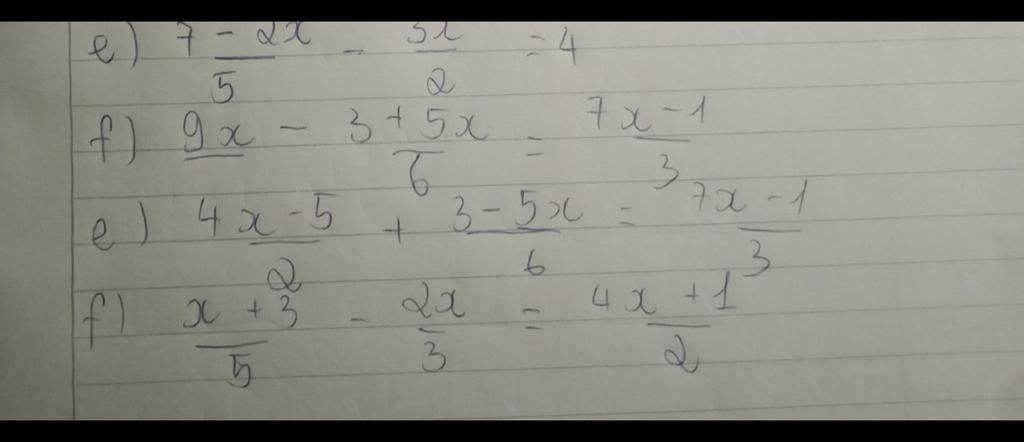 e) (7 - 2x)/5 - 3x/2 = 4
f) 9x - (3 + 5x)/6 = (7x - 1)/3
e) (4x - 5)/2 + (3 - 5x)/6 = (7x - 1)/3
f) (x + 3)/5 - 2x/3 = (4x + 1)/2